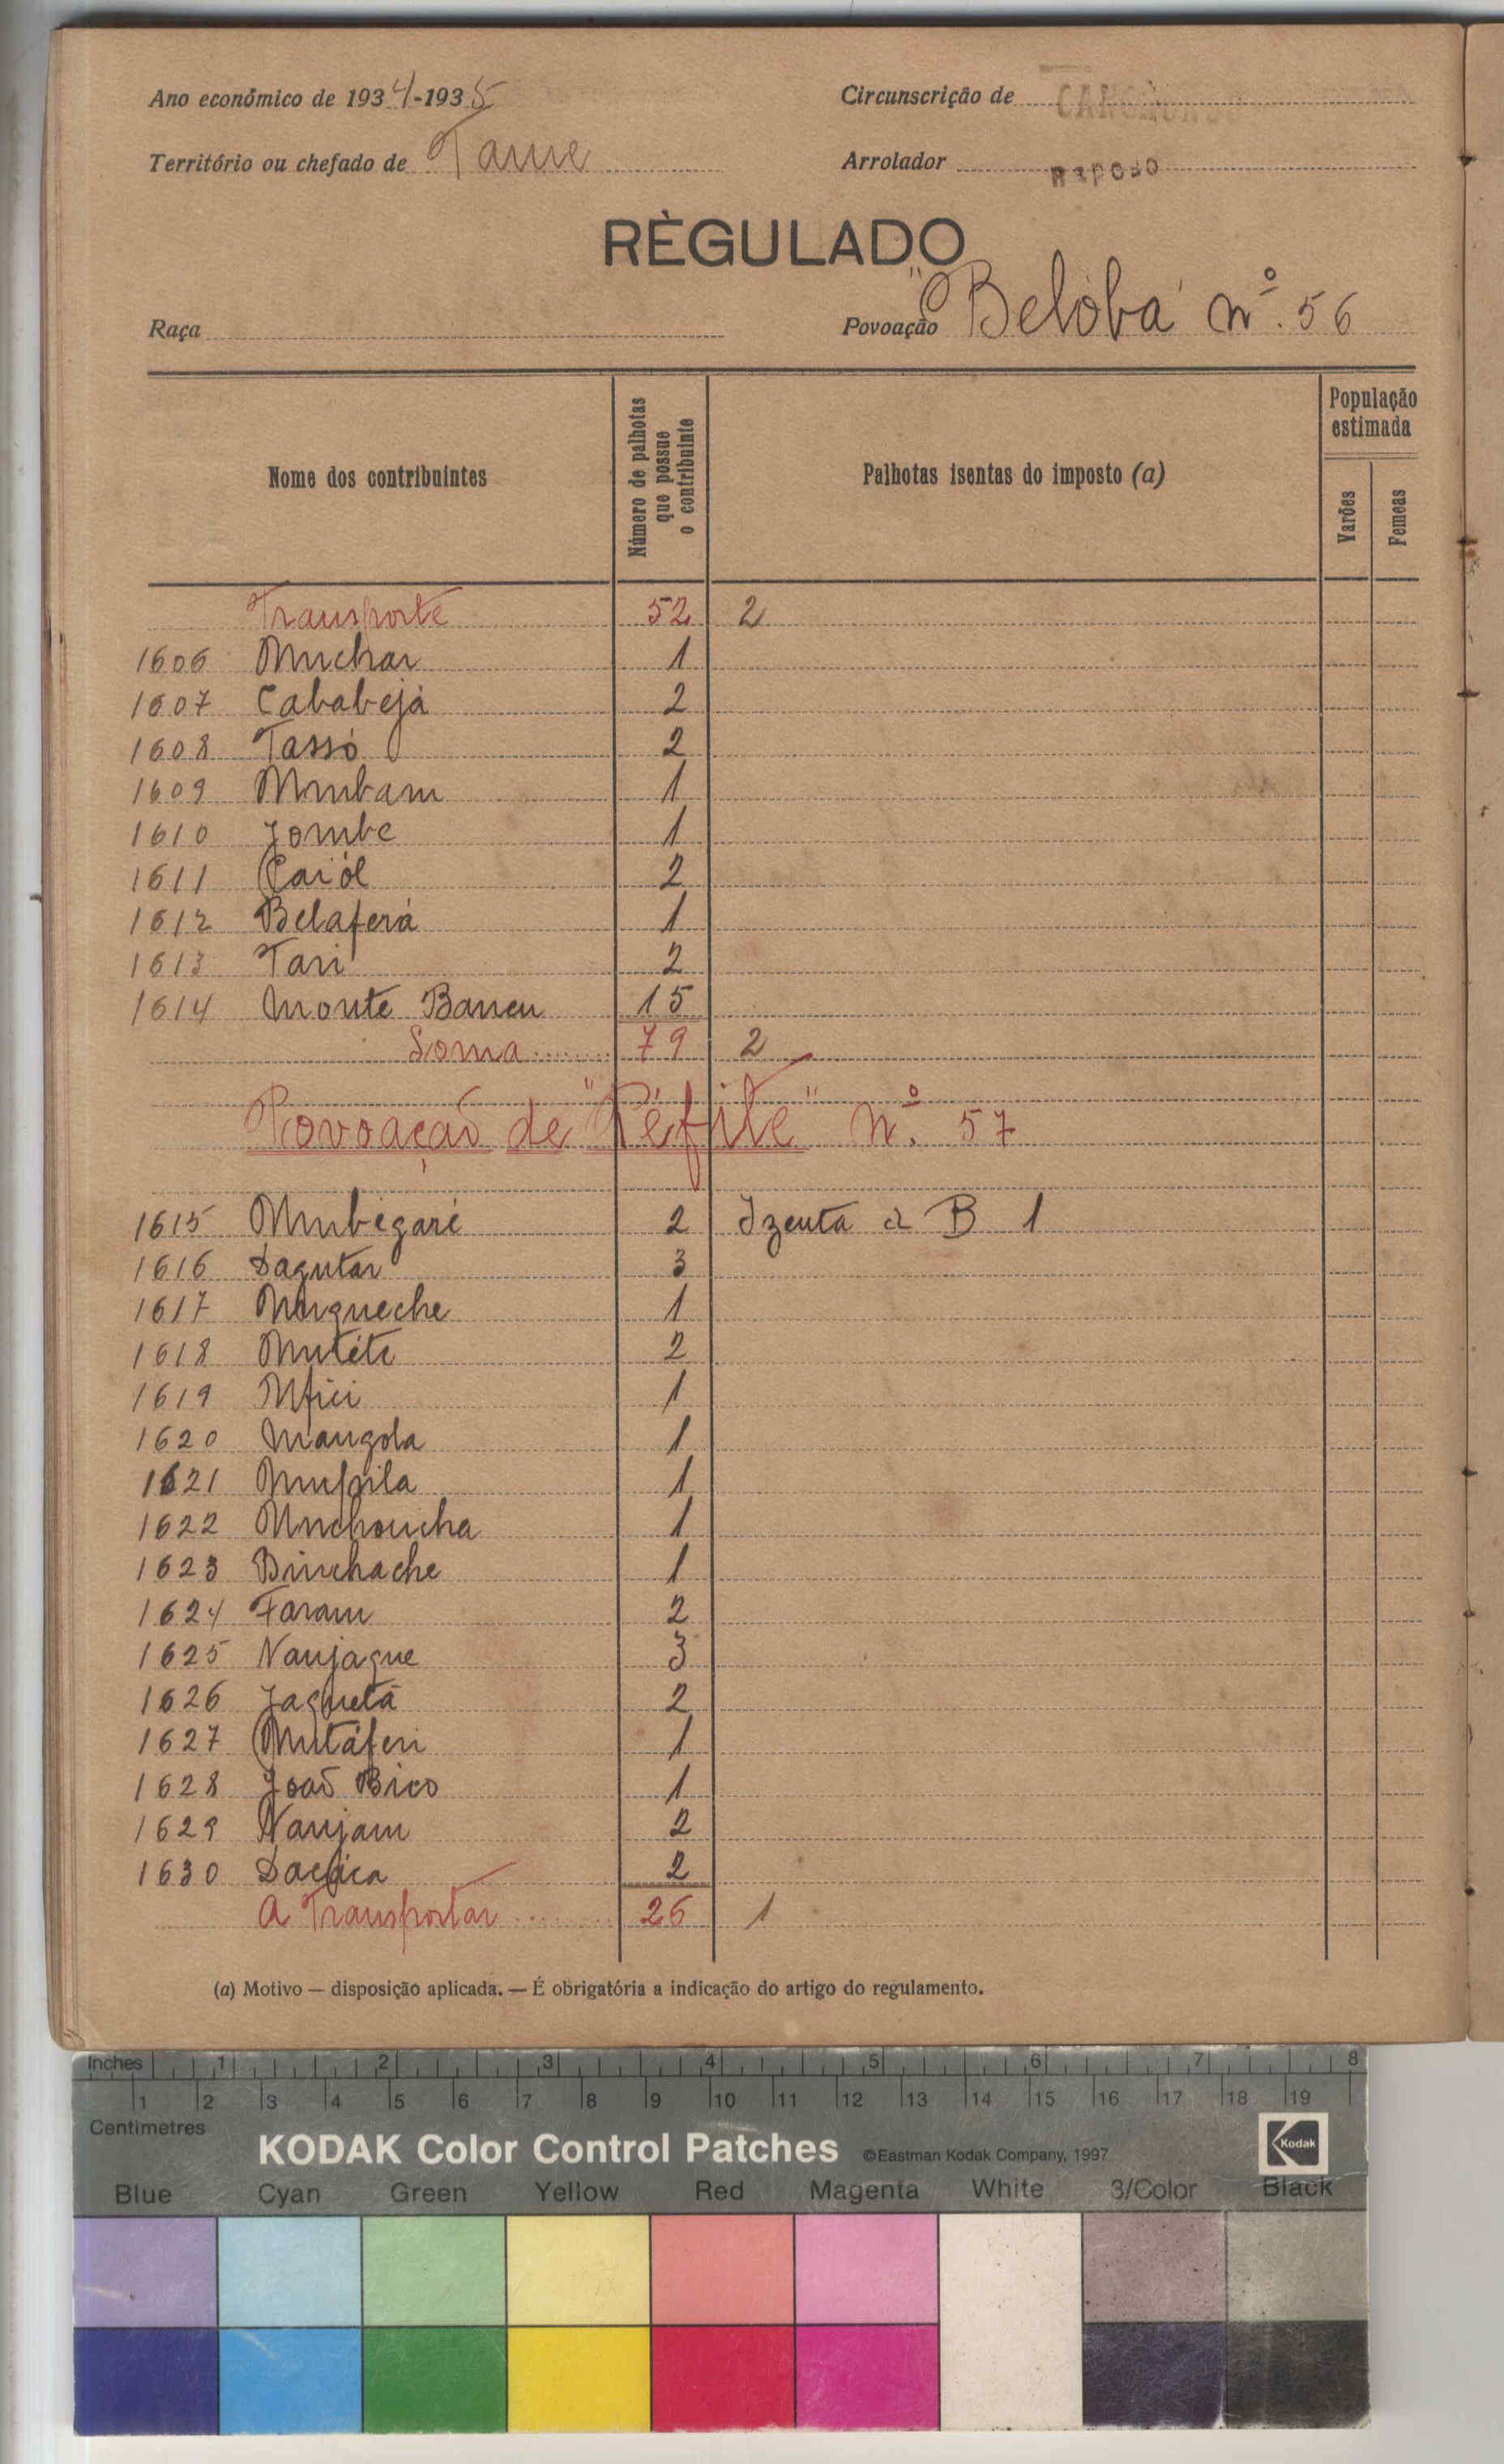 Ano económico de 1934-1935
Circunscrição de
Território ou chefado de Tame
Arrolador Raposo
RÈGULADO
Raça
Povoação "Belobá" nº. 56
Nome dos contribuintes
Número de palhotas que possue o contribuinte
Palhotas isentas do imposto (a)
População estimada
Varões
Femeas
Transporte 52 2
1606 Muchar 1
1607 Cababejá 2
1608 Tassó 2
1609 Mubam 1
1610 Jombe 1
1611 Caiól 2
1612 Belaferá 1
1613 Tari 2
1614 Monte Baneu 15
Soma 79 2
Povoação de "Péfite" nº. 57
1615 Mubegaré 2 Izenta a B 1
1616 Dagutar 3
1617 Mugueche 1
1618 Mutéte 2
1619 Mfici 1
1620 Mangola 1
1621 Mupila 1
1622 Unchoucha 1
1623 Binchache 1
1624 Faram 2
1625 Naujaque 3
1626 Jaguetá 2
1627 Mutáferi 1
1628 João Bico 1
1629 Naujam 2
1630 2
A Transportar 26 1
(a) Motivo — disposição aplicada. — É obrigatória a indicação do artigo do regulamento.
Inches 1 2 3 4 5 6 7 8
1 2 3 4 5 6 7 8 9 10 11 12 13 14 15 16 17 18 19
Centimetres
KODAK Color Control Patches ©Eastman Kodak Company, 1997 Kodak
Blue Cyan Green Yellow Red Magenta White 3/Color Black